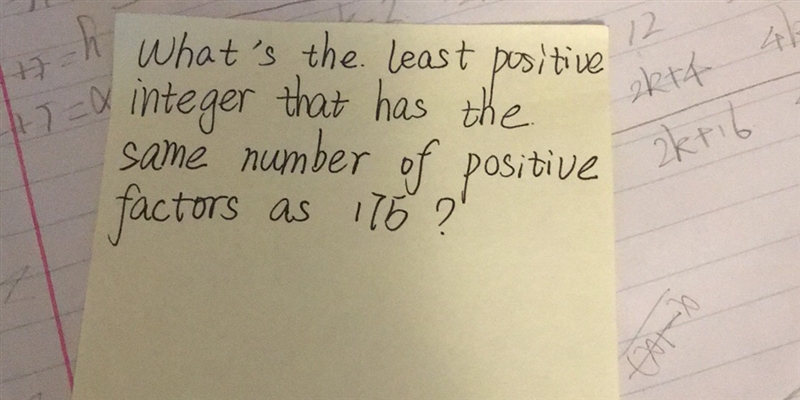 What's the least positive
integer that has the
same number of positive
factors as 175?
12
2k+4
2k+16
+7=h